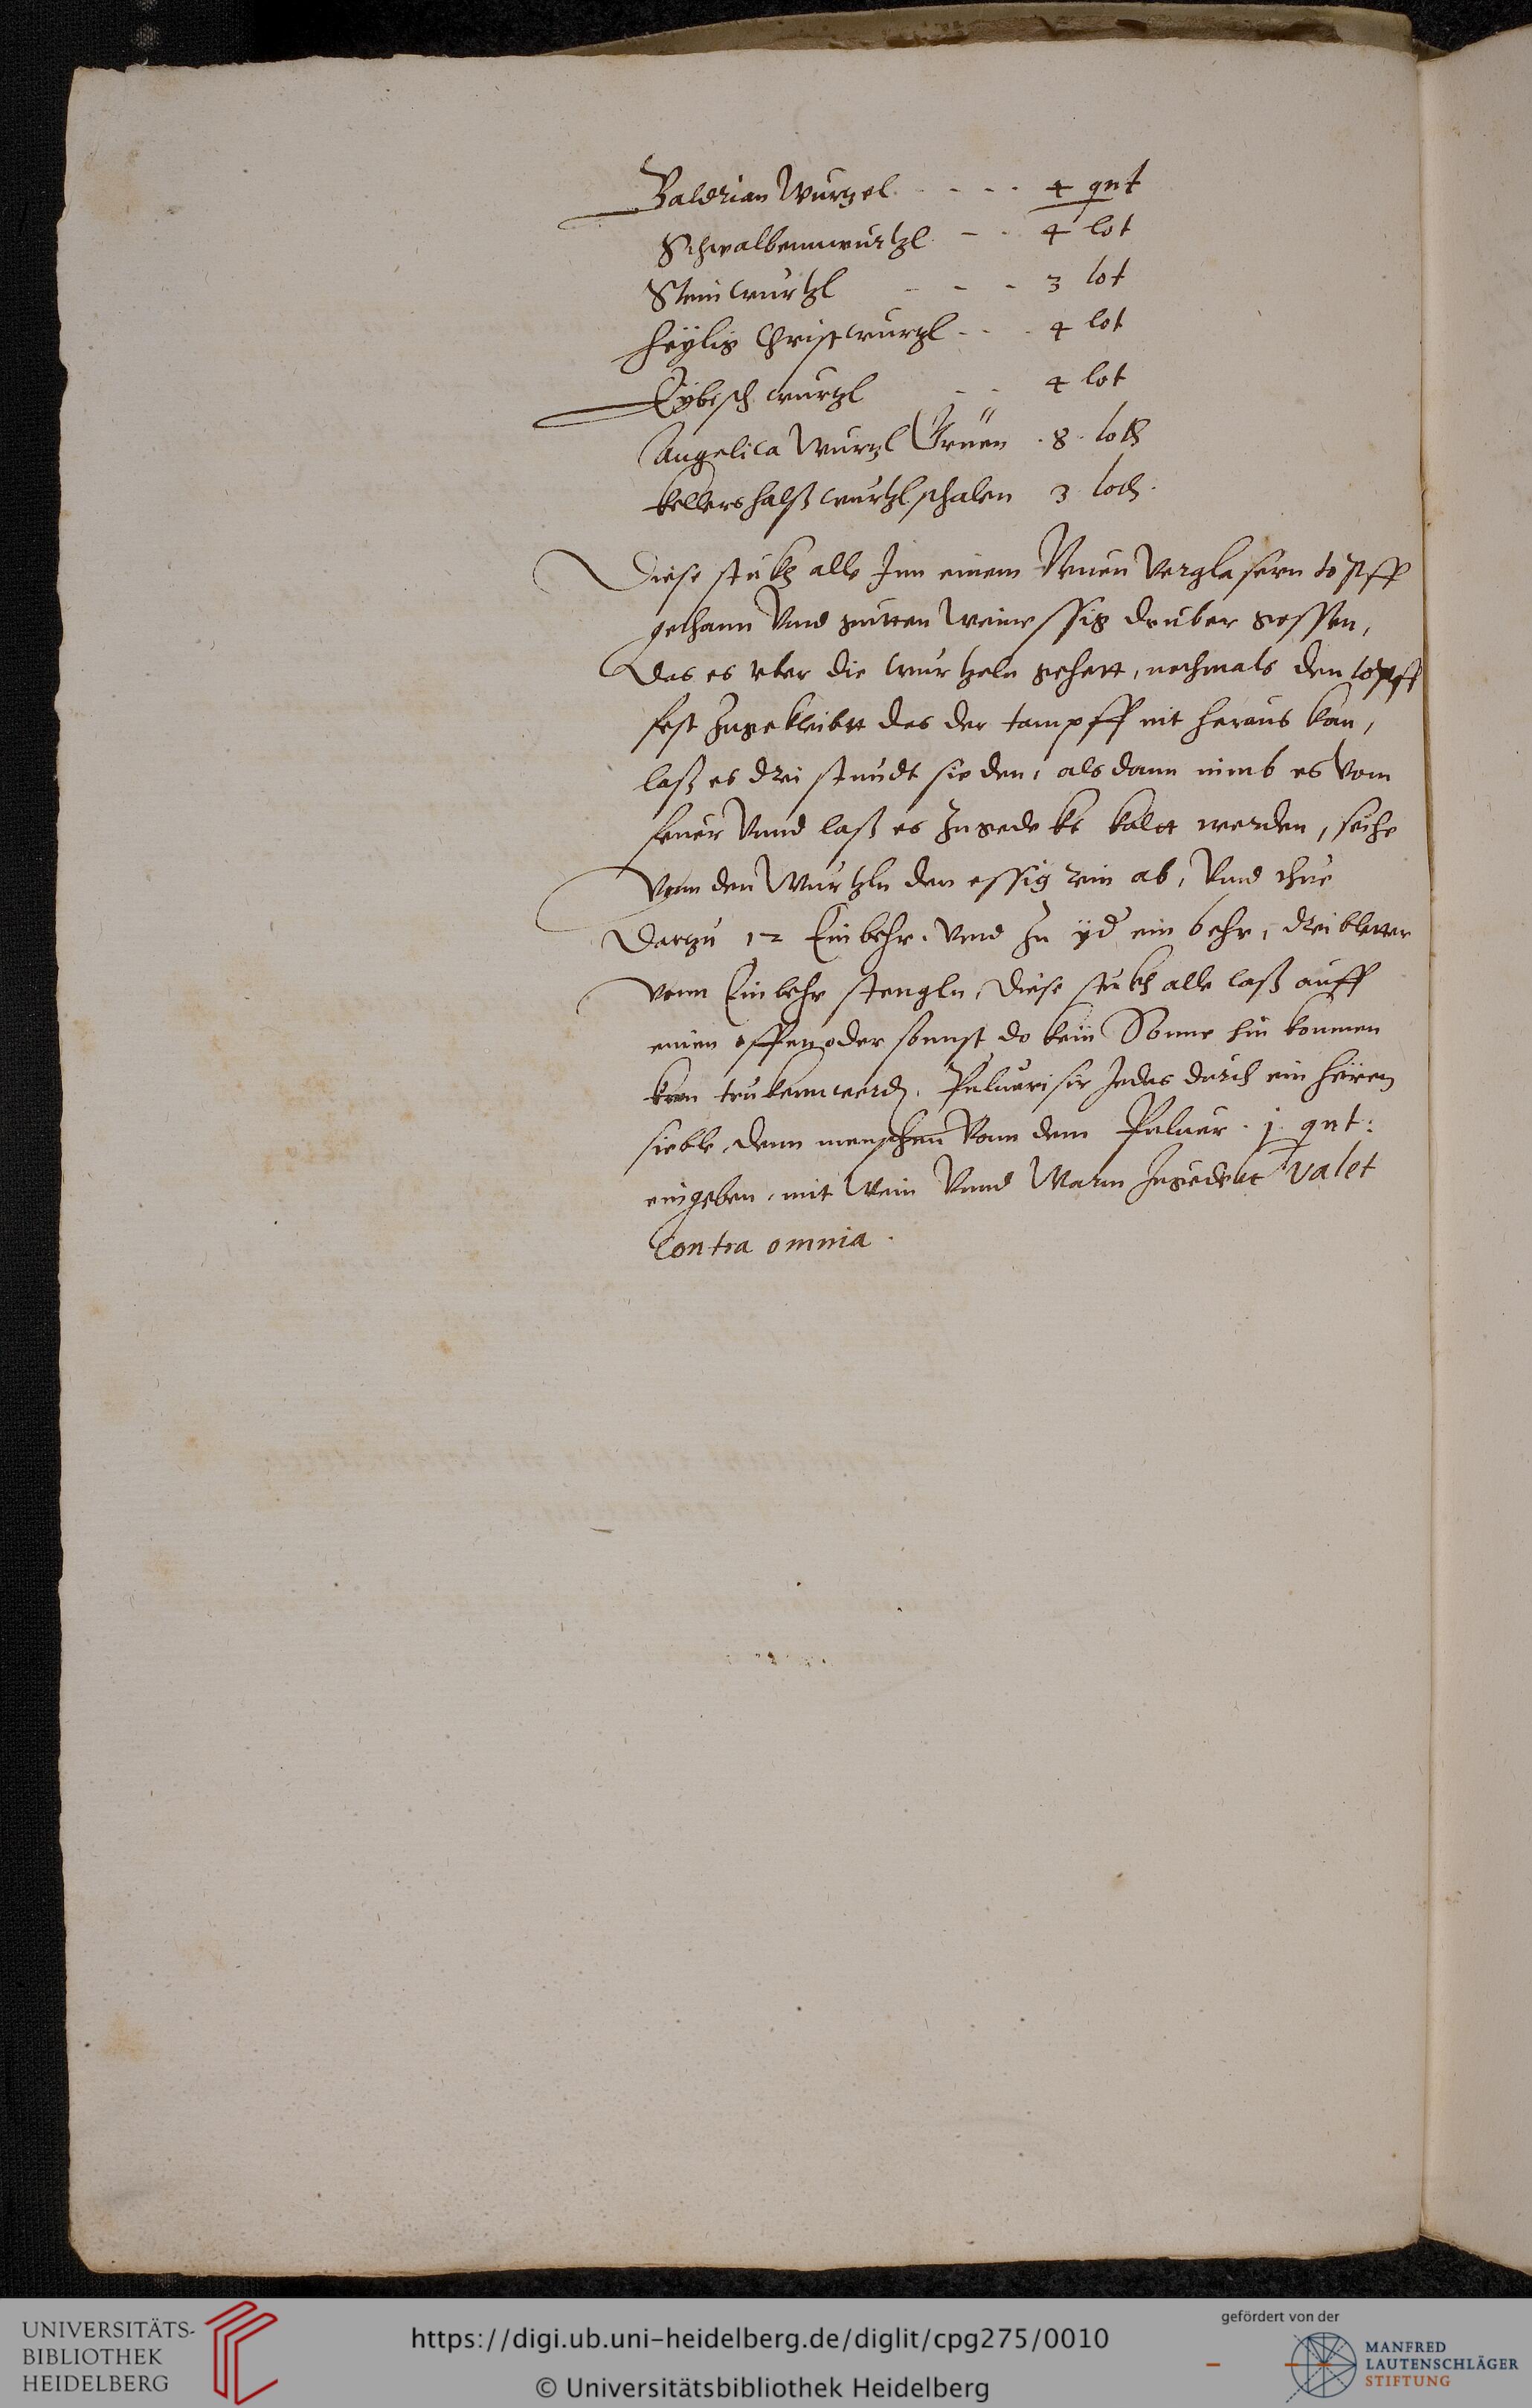 Baldrian Wurzel - - - - 4 qnt
Schwalbennwurtzl - - 4 lot
Steinwurtzl - - - 3 lot
heÿlig Christwurzl - - - 4 lot
Eÿbisch wurtzl - - 4 lot
Angelica Wurzl Gruen . 8 . loth
kellershalß wurtzl schalen 3 loth .
Diese stukh alle Inn einem Neuen verglasern topff
gethann Vnd gutten weinessig druber gossen,
Das es vber die wurtzeln gehett, nachmals den topff
fest Zugekleibtt das der tampff nit heraus kan,
laß es drei stundt sieden, als dann nimb es Vom
feuer Vnnd laß es Zugedekt kaltt werden, seihe
Vonn den Wurtzln den essig rein ab, Vnd thue
Darzu 12 Einbehr. Vnd Zu ÿd ein behr, drei bletter
Vonn Einbehr stengln, Diese stukh alle laß auff
einen offen oder sonnst do kein Sonne hin kommen
kan trukenn werd, Puluerisir Jedes durch ein hären
sieble, Denn menschenn Vonn dem Puluer . j . qnt:
eingeben, mit Wein Vnnd Warm Zugedekt Valet
Contra omnia .
UNIVERSITÄTS-
BIBLIOTHEK
HEIDELBERG
https://digi.ub.uni-heidelberg.de/diglit/cpg275/0010
© Universitätsbibliothek Heidelberg
gefördert von der
MANFRED
LAUTENSCHLÄGER
STIFTUNG